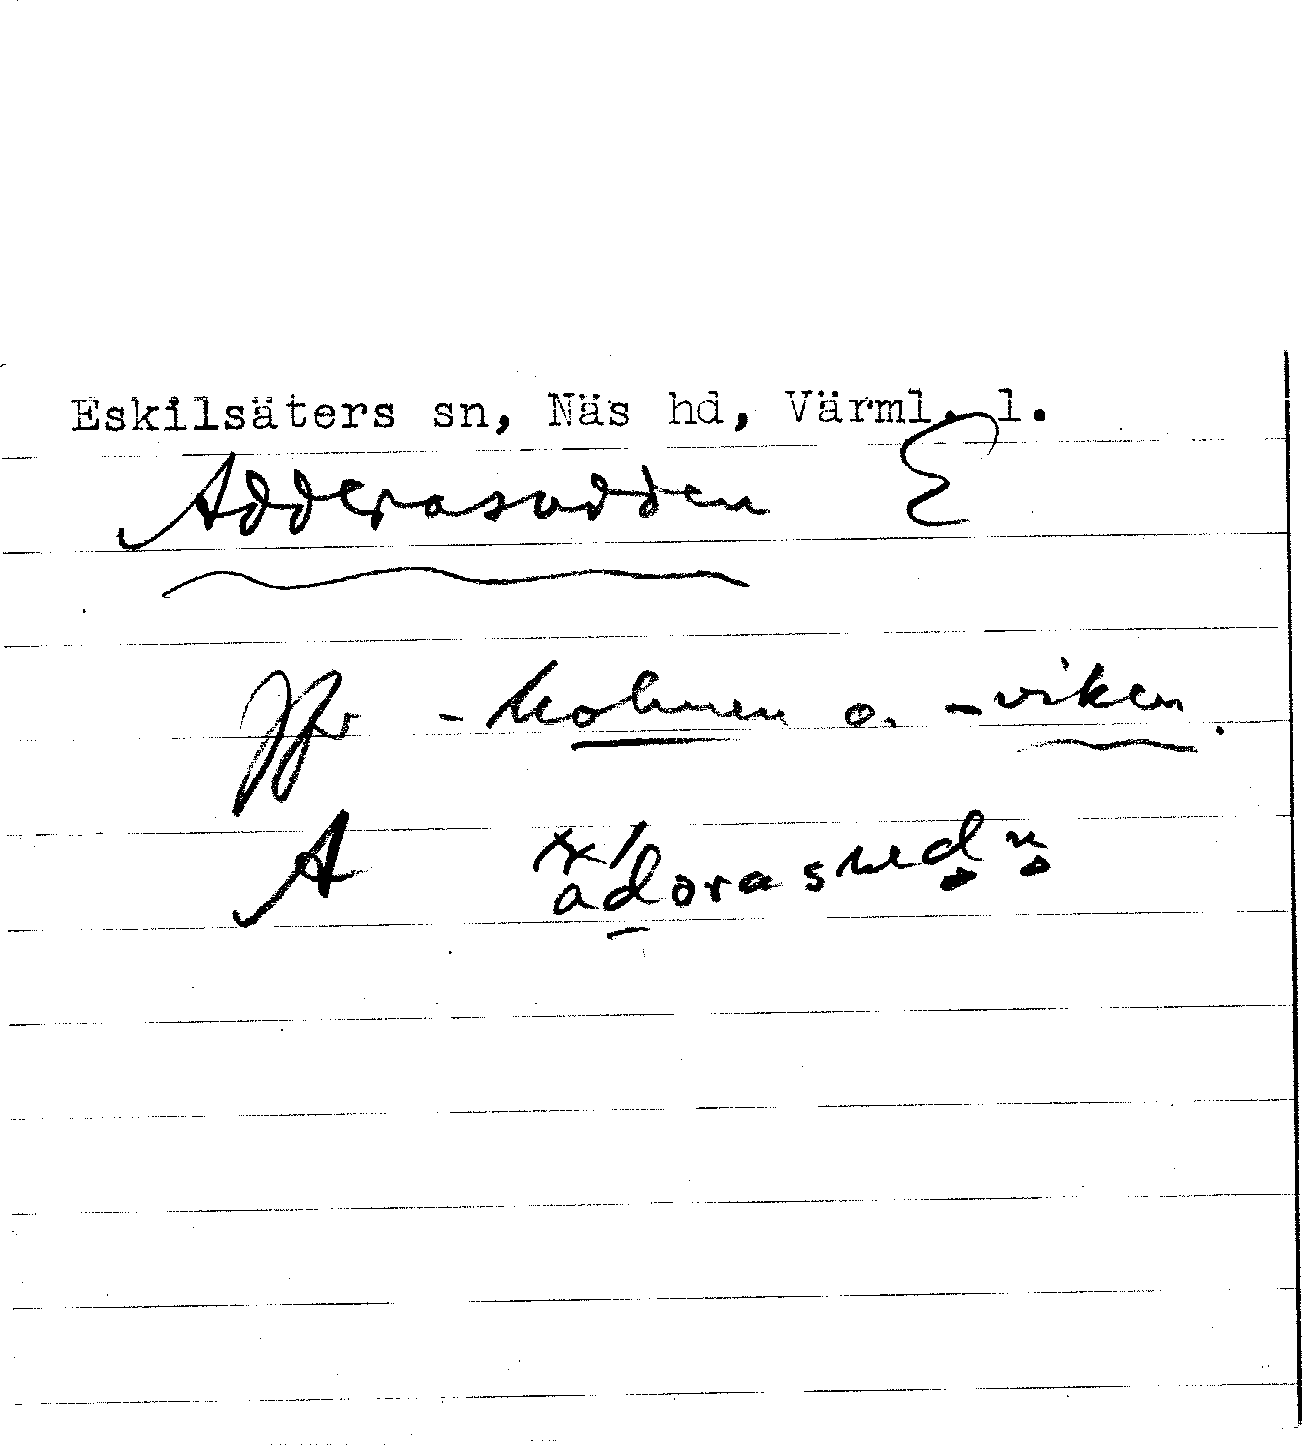 Eskilsäters sn, Näs hd, Värml. l.
Adderasudden E
Jfr - holmen o. -viken.
A